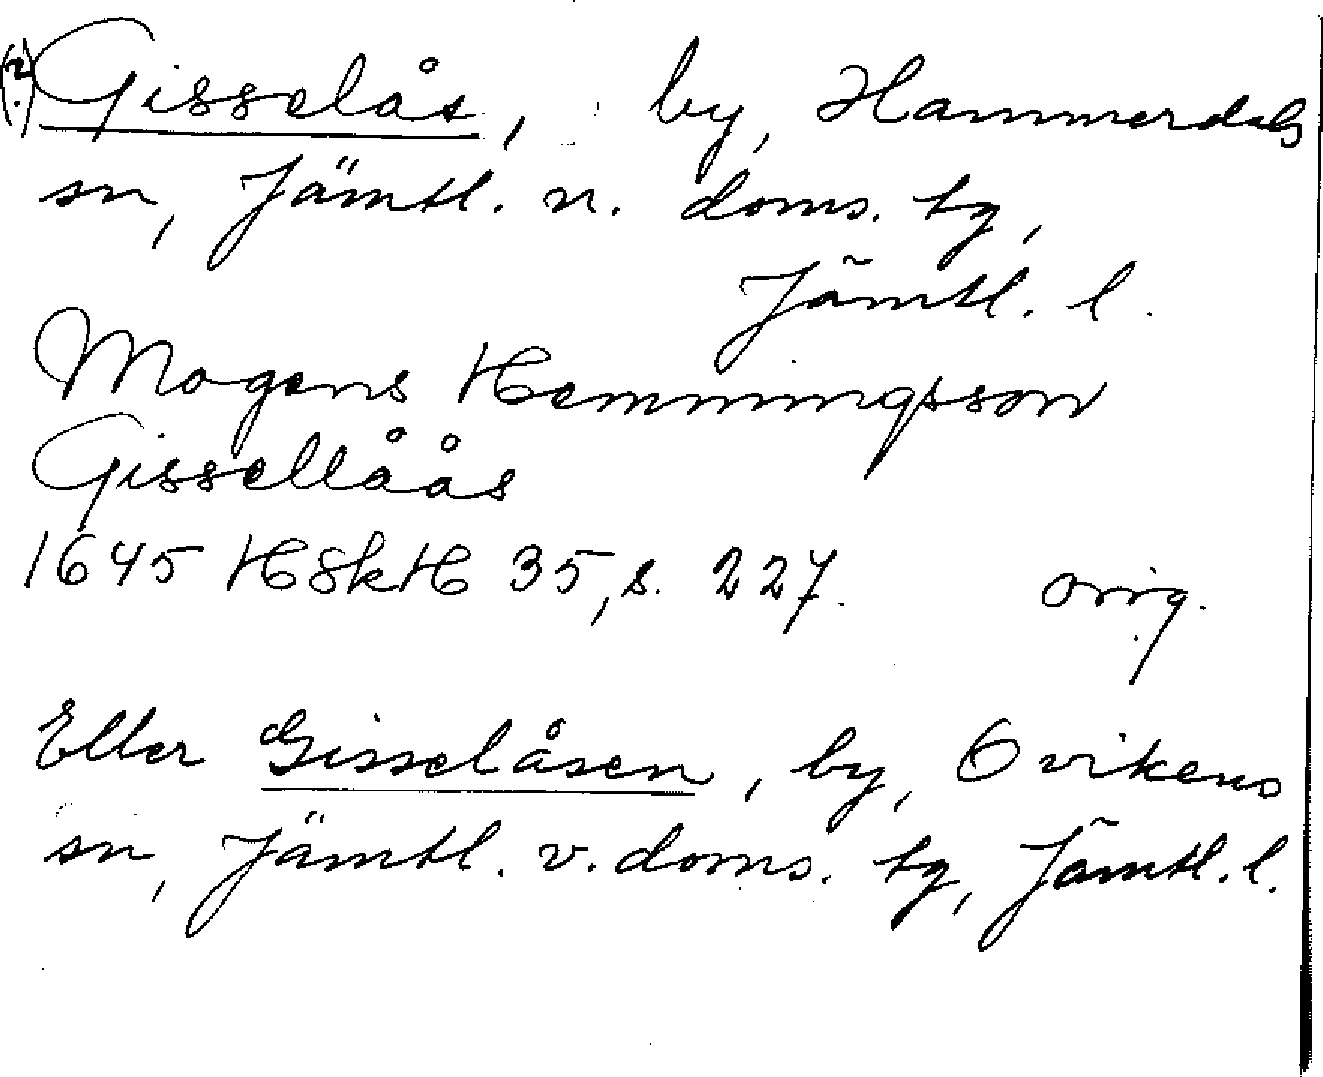 (?) Gisselås, by, Hammerdals
sn, Jämtl. n. doms. tg,
Jämtl. l.
Mogens Hemmingsson
Gissellåås
1645 HSkH 35, s. 227. orig.
Eller Gisselåsen, by, Ovikens
sn, Jämtl. v. doms. tg, Jämtl. l.